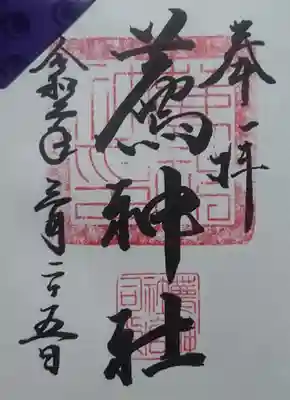 奉拝
薦神社
令和二年三月二十五日